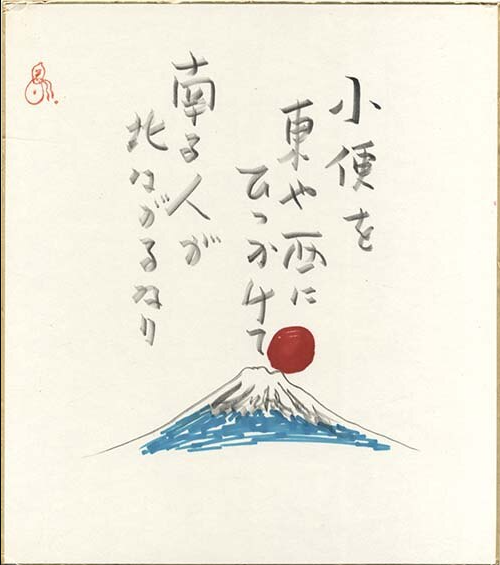 小便を
東や西に
ひっかけて
南る人が
北ながるなり